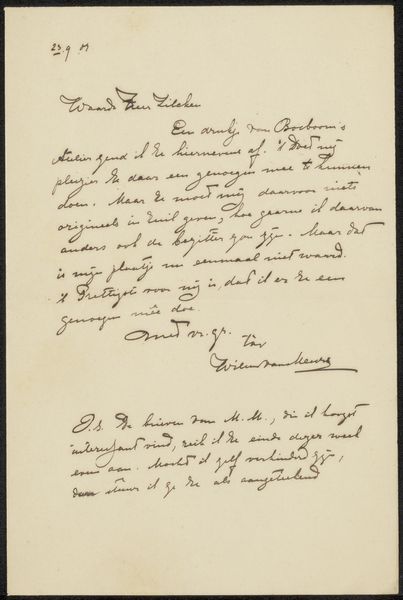 23.9.01
Waarde Heer Zilcken
Een drukje van Bosboom's
Atelier zend ik Ue hiernevens af. 't Doet mij
plezier Ue daar een genoegen mee te kunnen
doen. Maar Ue moet mij daarvoor niets
origineels in ruil geven, hoe gaarne ik daarvan
anders ook de bezitter zou zijn. Maar dat
is mijn plaatje nu eenmaal niet waard.
't Prettigst voor mij is, dat ik er Ue een
genoegen mêe doe.
Met vr. gr.
tav
Willem van Meurs
P.S. De brieven van M.M., die ik hoogst
interessant vind, reik ik Ue einde dezer week
even aan. Mocht ik zelf verhinderd zijn,
stuur ik ze Ue als aangetekend